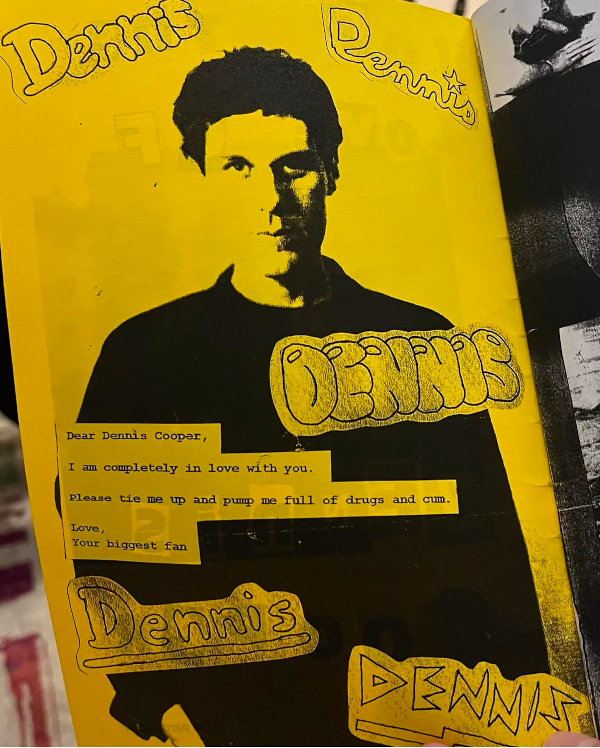 Dennis
Dennis
DENNIS
Dear Dennis Cooper,
I am completely in love with you.
Please tie me up and pump me full of drugs and cum.
Love,
Your biggest fan
Dennis
DENNIS